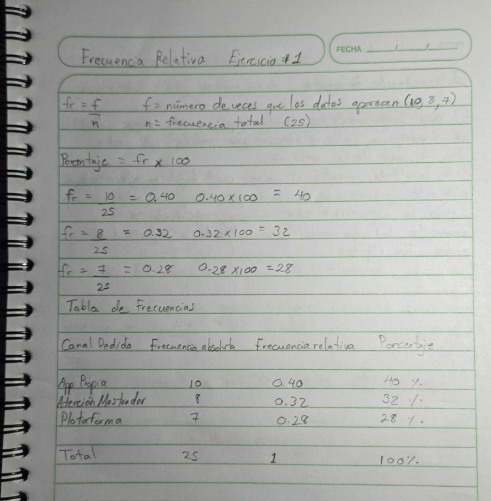 Frecuencia Relativa Ejercicio #1
FECHA / /
fr = f/n f = número de veces que los datos aparecen (10, 8, 7)
n = frecuencia total (25)
Porcentaje = fr x 100
fr = 10/25 = 0.40 0.40 x 100 = 40
fr = 8/25 = 0.32 0.32 x 100 = 32
fr = 7/25 = 0.28 0.28 x 100 = 28
Tabla de Frecuencias
Canal Pedido Frecuencia absoluta Frecuencia relativa Porcentaje
App Propia 10 0.40 40 %
Atención Mostrador 8 0.32 32 %
Plataforma 7 0.28 28 %
Total 25 1 100%